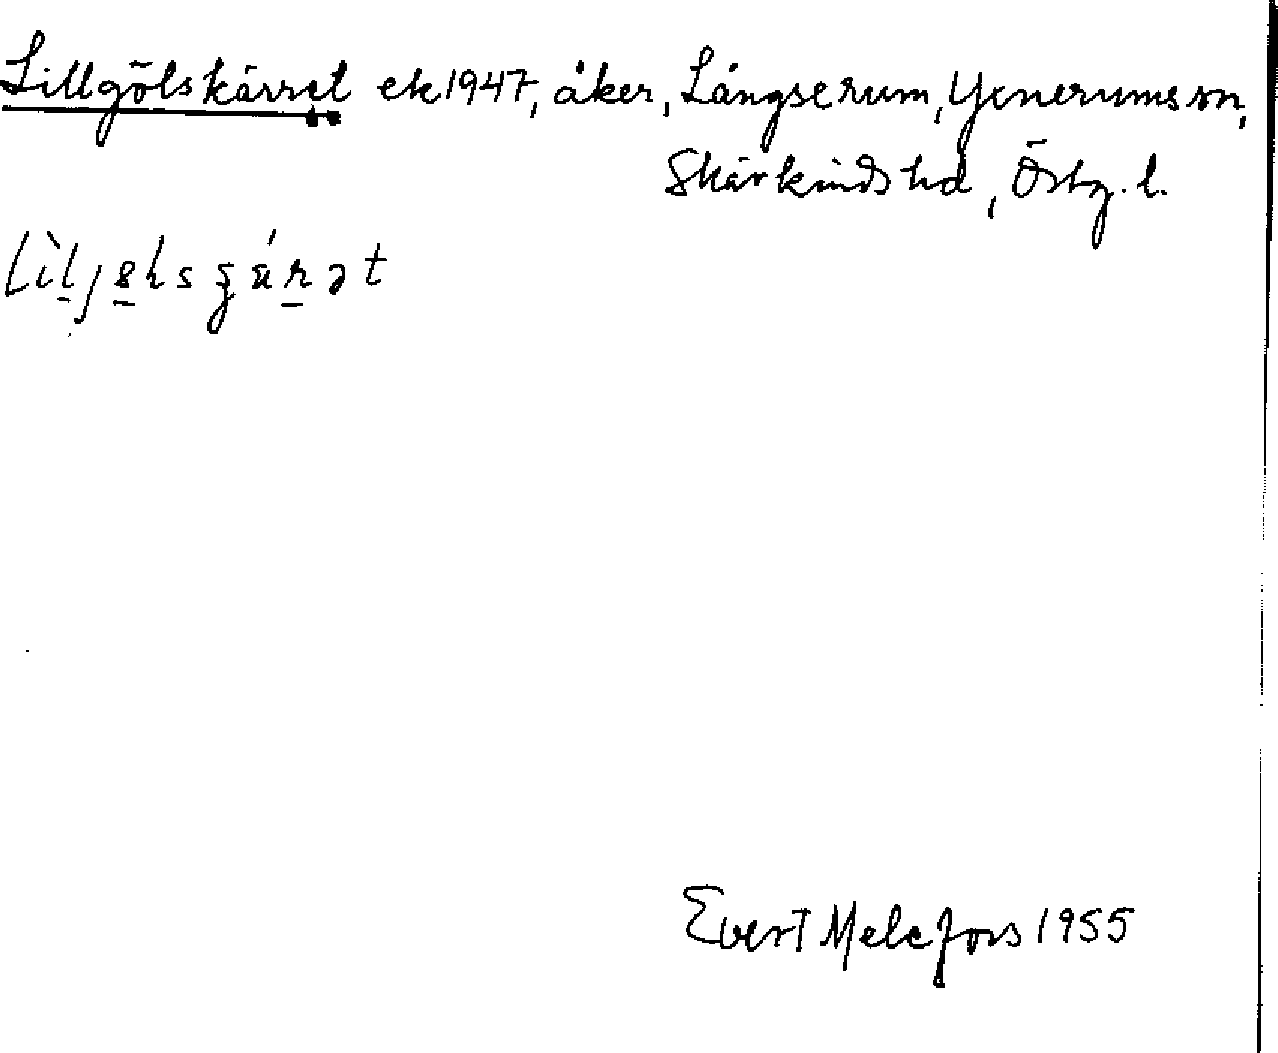 Lillgölskärret ek 1947, åker, Långserum, Yxnerums sn,
Skärkinds hd, Östg. l.
Evert Melefors 1955